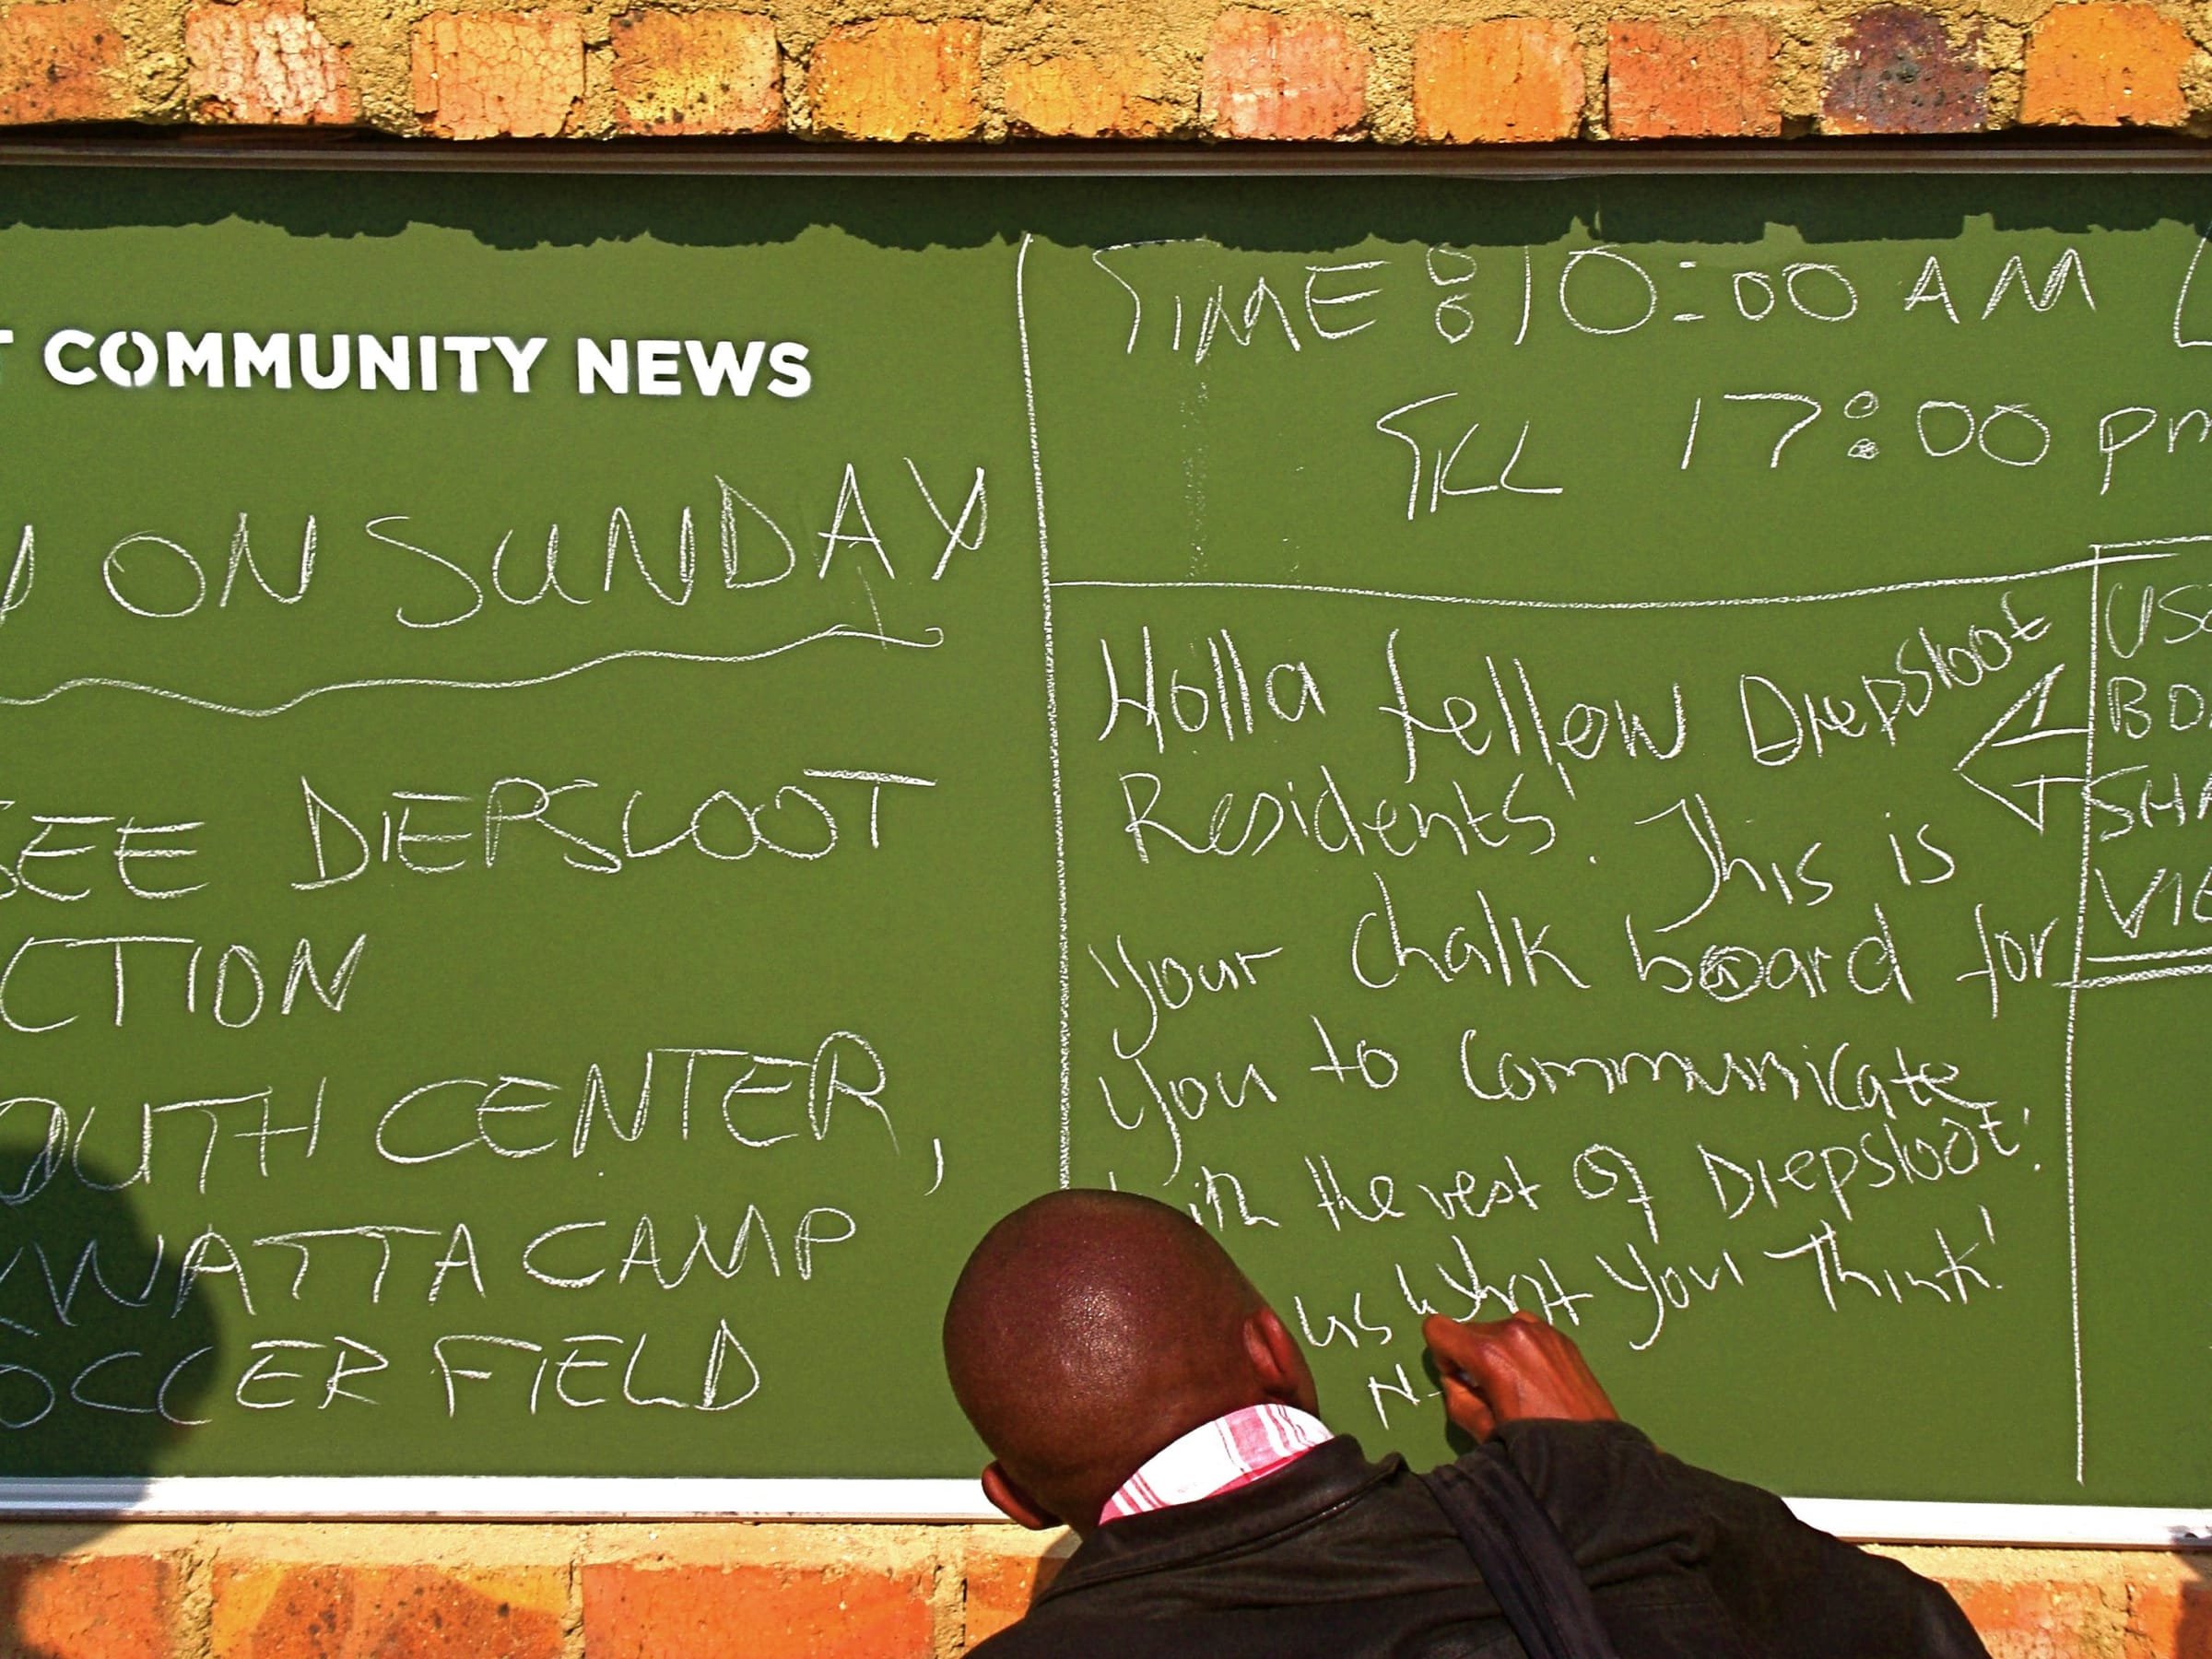 COMMUNITY NEWS
ON SUNDAY
SEE DIEPSLOOT
CTION
OUTH CENTER,
WATTA CAMP
OCCER FIELD
TIME : 10:00 AM
TILL 17:00 pm
Holla fellow Diepsloot
Residents! This is
Your Chalk board for
You to Communicate
with the rest of Diepsloot!
us What You Think!
N-
US
BO
SHA
VIE